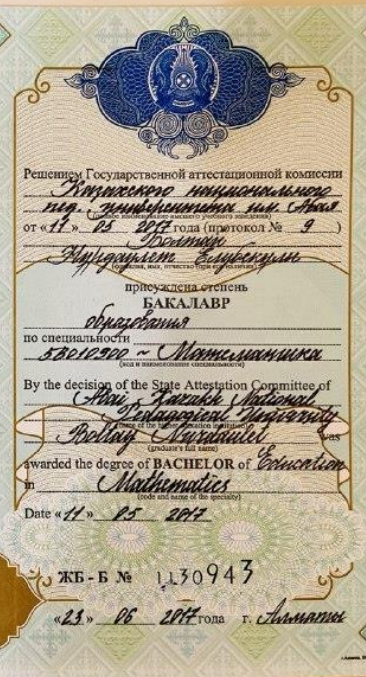 Решением Государственной аттестационной комиссии
Казахского национального
пед. университета им. Абая
(полное наименование высшего учебного заведения)
от «11» 05 2017 года (протокол № 9 )
Болтай
Нурдаулет Елубекулы
(фамилия, имя, отчество (при его наличии))
присуждена степень
БАКАЛАВР
образования
по специальности
5В010900 ~ Математика
(код и наименование специальности)
By the decision of the State Attestation Committee of
Abai Kazakh National
Pedagogical University
(name of the higher education institution)
Boltay Nurdaulet was
(graduate's full name)
awarded the degree of BACHELOR of Education
in Mathematics
(code and name of the specialty)
Date «11» 05 2017
ЖБ - Б № 1130943
«23» 06 2017 года г. Алматы